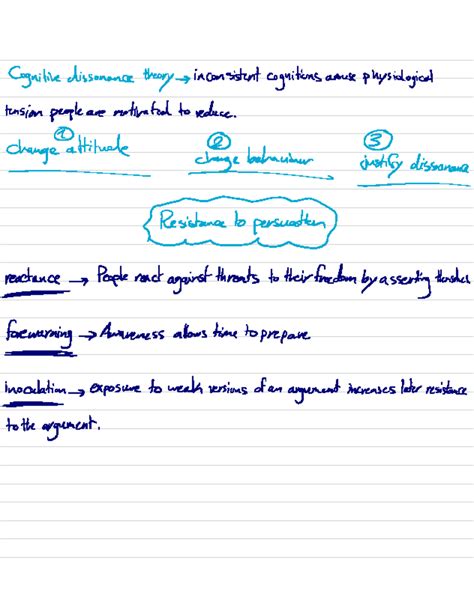 Cognitive dissonance theory → inconsistent cognitions arouse physiological
tension people are motivated to reduce.
① ② ③
change attitude change behaviour justify dissonance
Resistance to persuasion
reactance → People react against threats to their freedom by asserting
forewarning → Awareness allows time to prepare
inoculation → exposure to weak versions of an argument increases later resistance
to the argument.